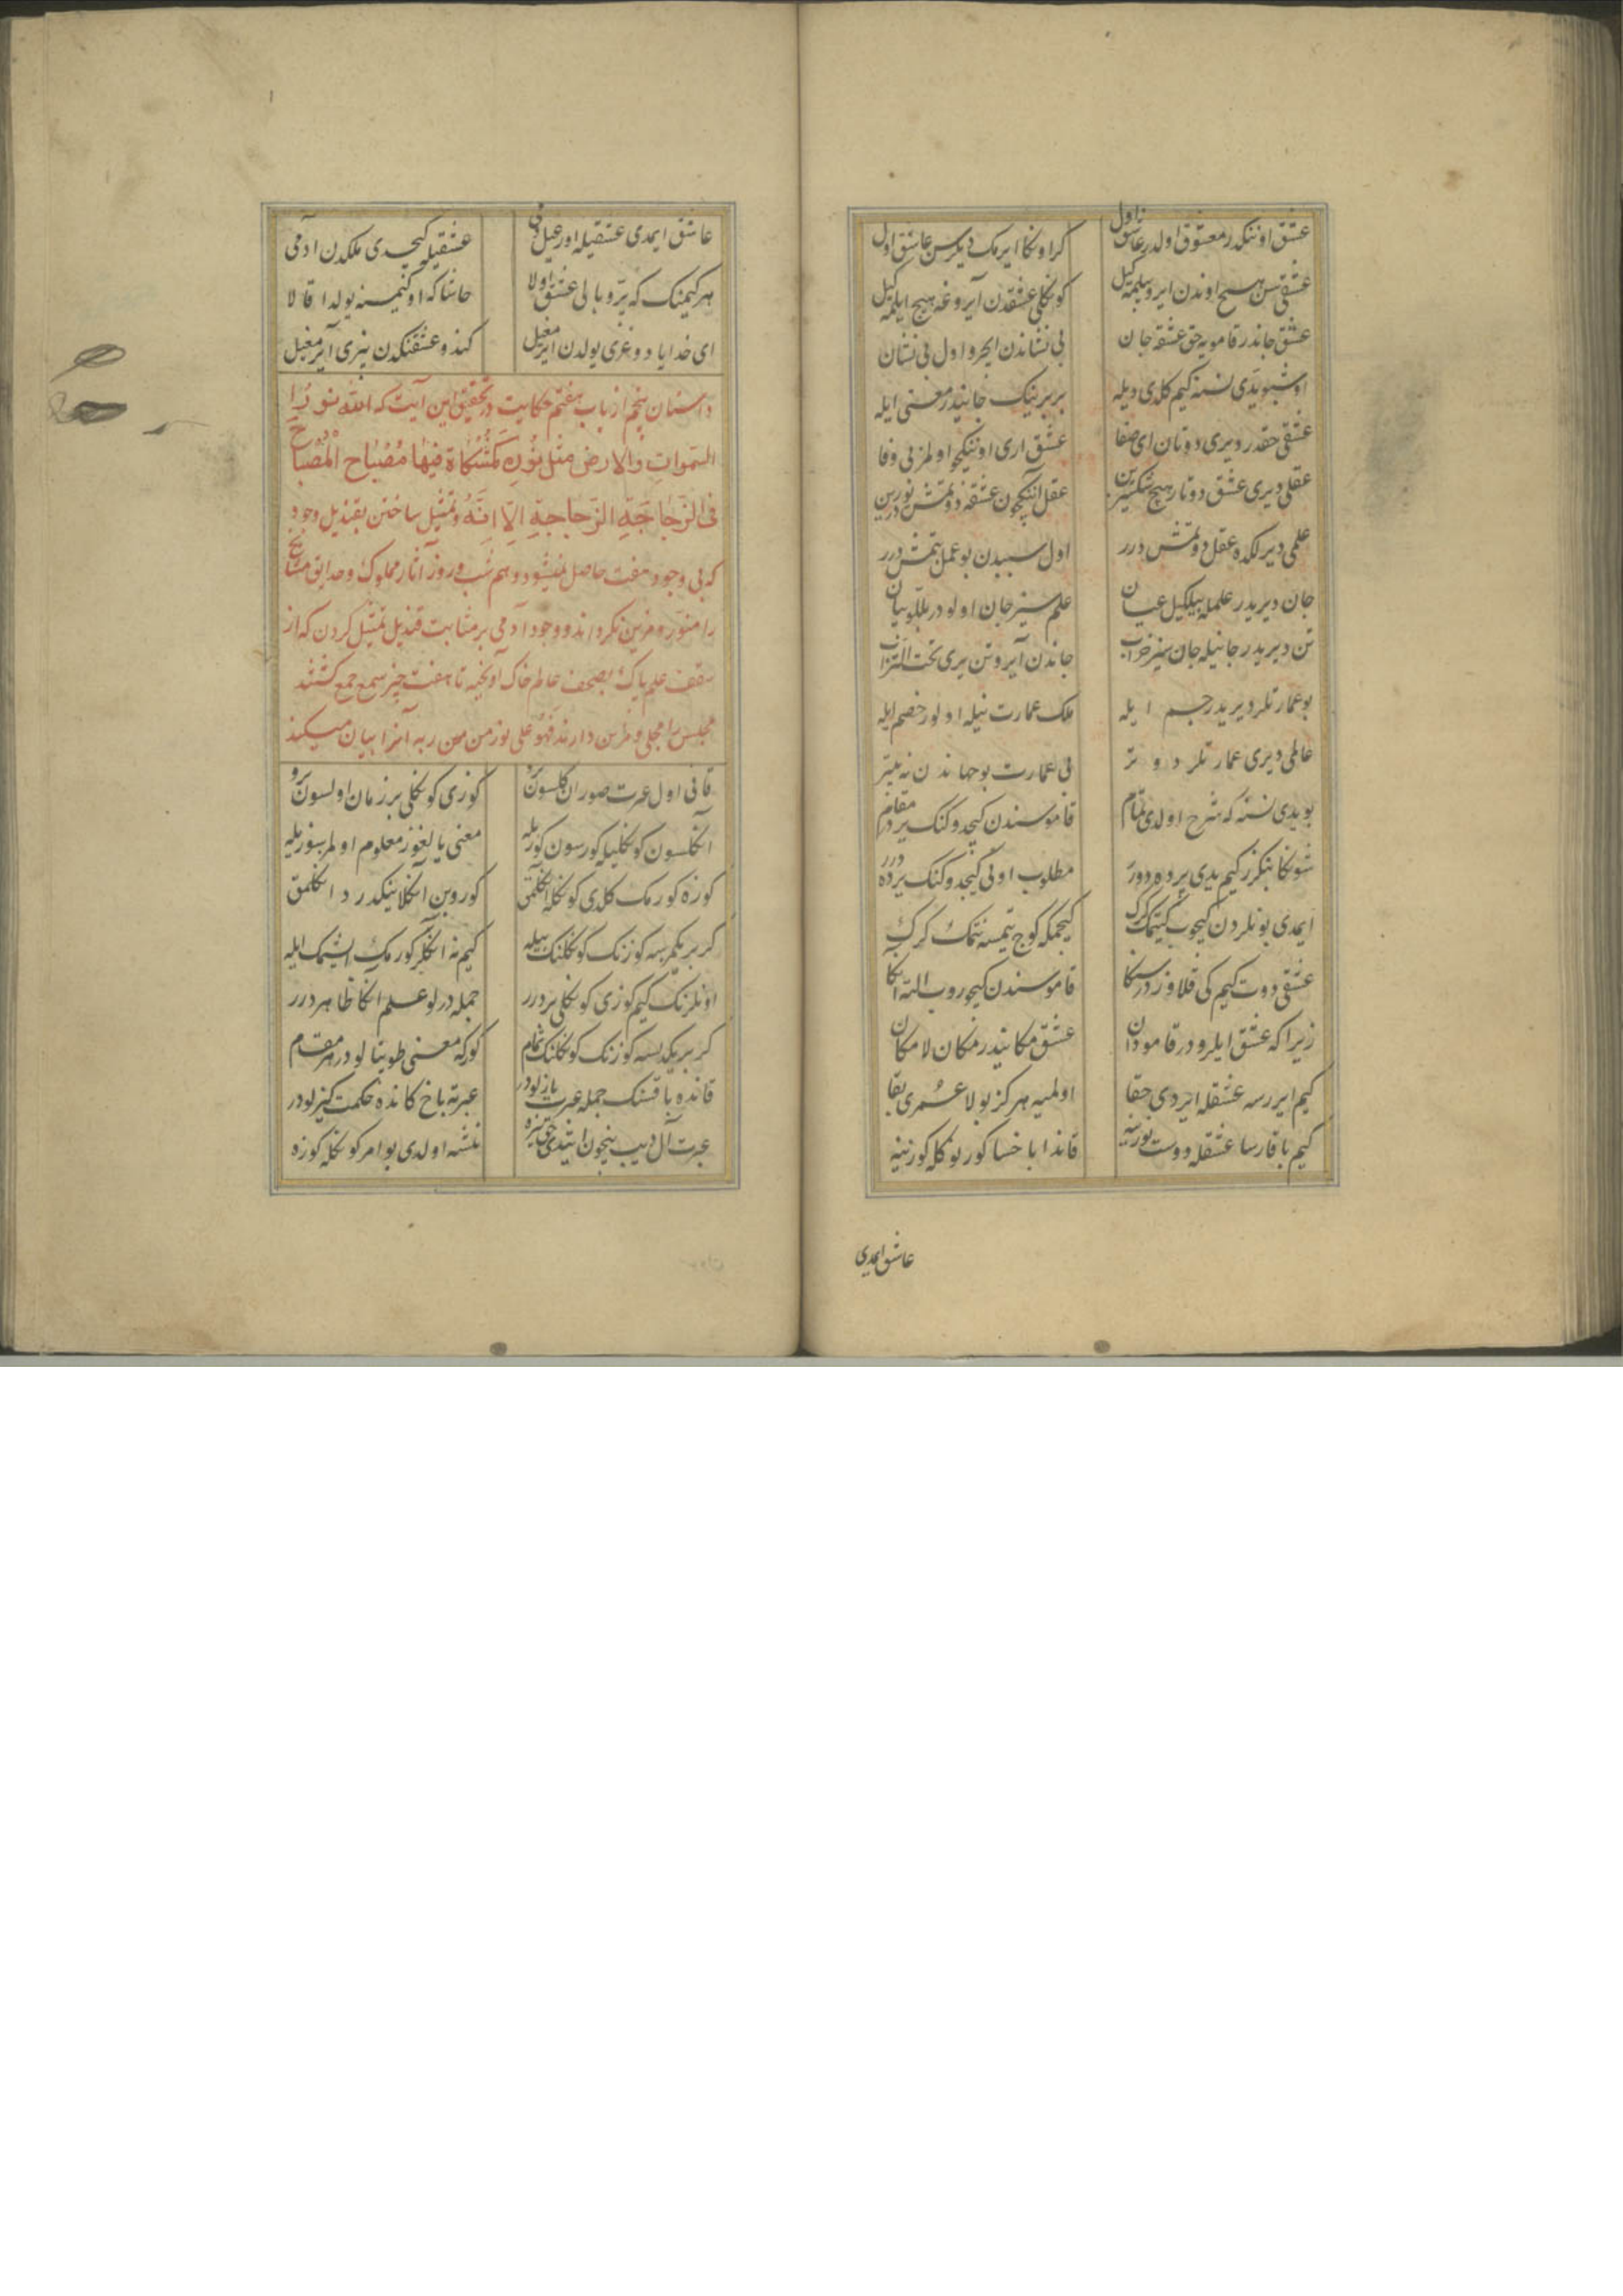 عشق اونکدر معشوق اولدر عاشق اول کر اونکا ایرمک دیلرسن عاشق اول
عشقی سن هیچ اوندن ایرو بیلمه کیل کونکلی عشقدن آیروغه هیچ ایلمه کیل
عشق جاندر قامویه حق عشقه جان بی نشاندن ایچرو اول بی نشان
اوشبو یدی نسنه کیم کلدی دیله بربرینک جانیدر معنی ایله
عشقی حقدر دیری دوتان ای صفا عشق اری اونکیچو اولمز بی وفا
عقلی دیری عشق دوتار هیچ شکسزین عقل انکچون عشقه دوتمش در یوزین
علمی دیرلکده عقل دوتمش درر اول سببدن بو عمل بتمش درر
جان دیریدر علمله بیلکیل عیان علم سیز جان اولودر بللو بیان
تن دیریدر جانیله جان سیز خراب جاندن آیرو تن یری تحت التراب
بو عمارتلر دیریدر جسم ایله ملک عمارت نیله اولور خصم ایله
عالمی دیری عمارتلر دوتر بی عمارت بو جهاندن نه بیتر
بو یدی نسنه که شرح اولدی تمام قاموسندن کیچدوکنک بر در مقام
شونکا بنکزر کیم یدی پرده دورر مطلوب اونی کیچدوکنک یرده درر
ایمدی بونلردن کیچوب کیتمک کرک کیچمکه کوج یتمسه نتمک کرک
عشقی دوت کیم کی قلاوزدر سنکا قاموسندن کیچوروب التر انکا
زیرا که عشق ایلرودر قامودان عشق مکانیدر مکان لامکان
کیم ایررسه عشقله ایردی حقا اولمیه هرکز بولا عمری بقا
کیم باقارسا عشقله دوست یوزینه قاندا باخسا کورینور کلکور کوزینه
عاشق ایمدی
عاشق ایمدی عشقیله اورغیل دمی عشقیله کیچدی ملکدن ادمی
هر کیمنک که پر و بالی عشق اولا حاشا که اول کیمسنه یولدا قالا
ای خدایا دوغری یولدن ایرمغیل کندو عشقنکدن بیزی آیرمغیل
داستان پنجم از باب هفتم حکایت در تحقیق این آیت که الله نور
السموات والارض مثل نوره کمشکاة فیها مصباح المصباح
فی الزجاجة الزجاجة الایة و تمثیل ساختن بقندیل وجود
که بی وجود هفت حاصل نمیشود و هم شب و روز آثار مملوک و حدایق مشایخ
را منور و مزین نکرداند و وجود آدمی بر مثابت قندیل تمثیل کردن که از
سقف علم پاک بصحف عالم خاک آویخته تا هفت چیز سمع جمع کشتند
مجلس را مجلی و مزین دارند فهو علی نور من من ربه آنرا بیان میکند
قانی اول عبرت صوران کلسون برو کوزی کونکلی بر زمان اولسون برو
انکلسون کونکلیله کورسون کوزیله معنی یالغوز معلوم اولمز سوزیله
کوزه کورمک کلدی کونکله انکلمق کوروبن انکلاینکدر د انکلمق
کر بریکمزسه کوزنک کونکلنک بیله کیم نه انکلر کورمک ایشتمک ایله
اونلرنک کیم کوزی کونکلی بر درر جمله درلو علم انکا ظاهر درر
کر بریکدیسه کوزنک کونکلنک تمام کور که معنی طوپتالودر هر مقام
قانده باقسنک جمله عبرت یازلودر عبرته باخ کانده حکمت کیزلودر
عبرت آل دیب نیچون ایتدی حق بیزه نشه اولدی بو امر کونکله کوزه